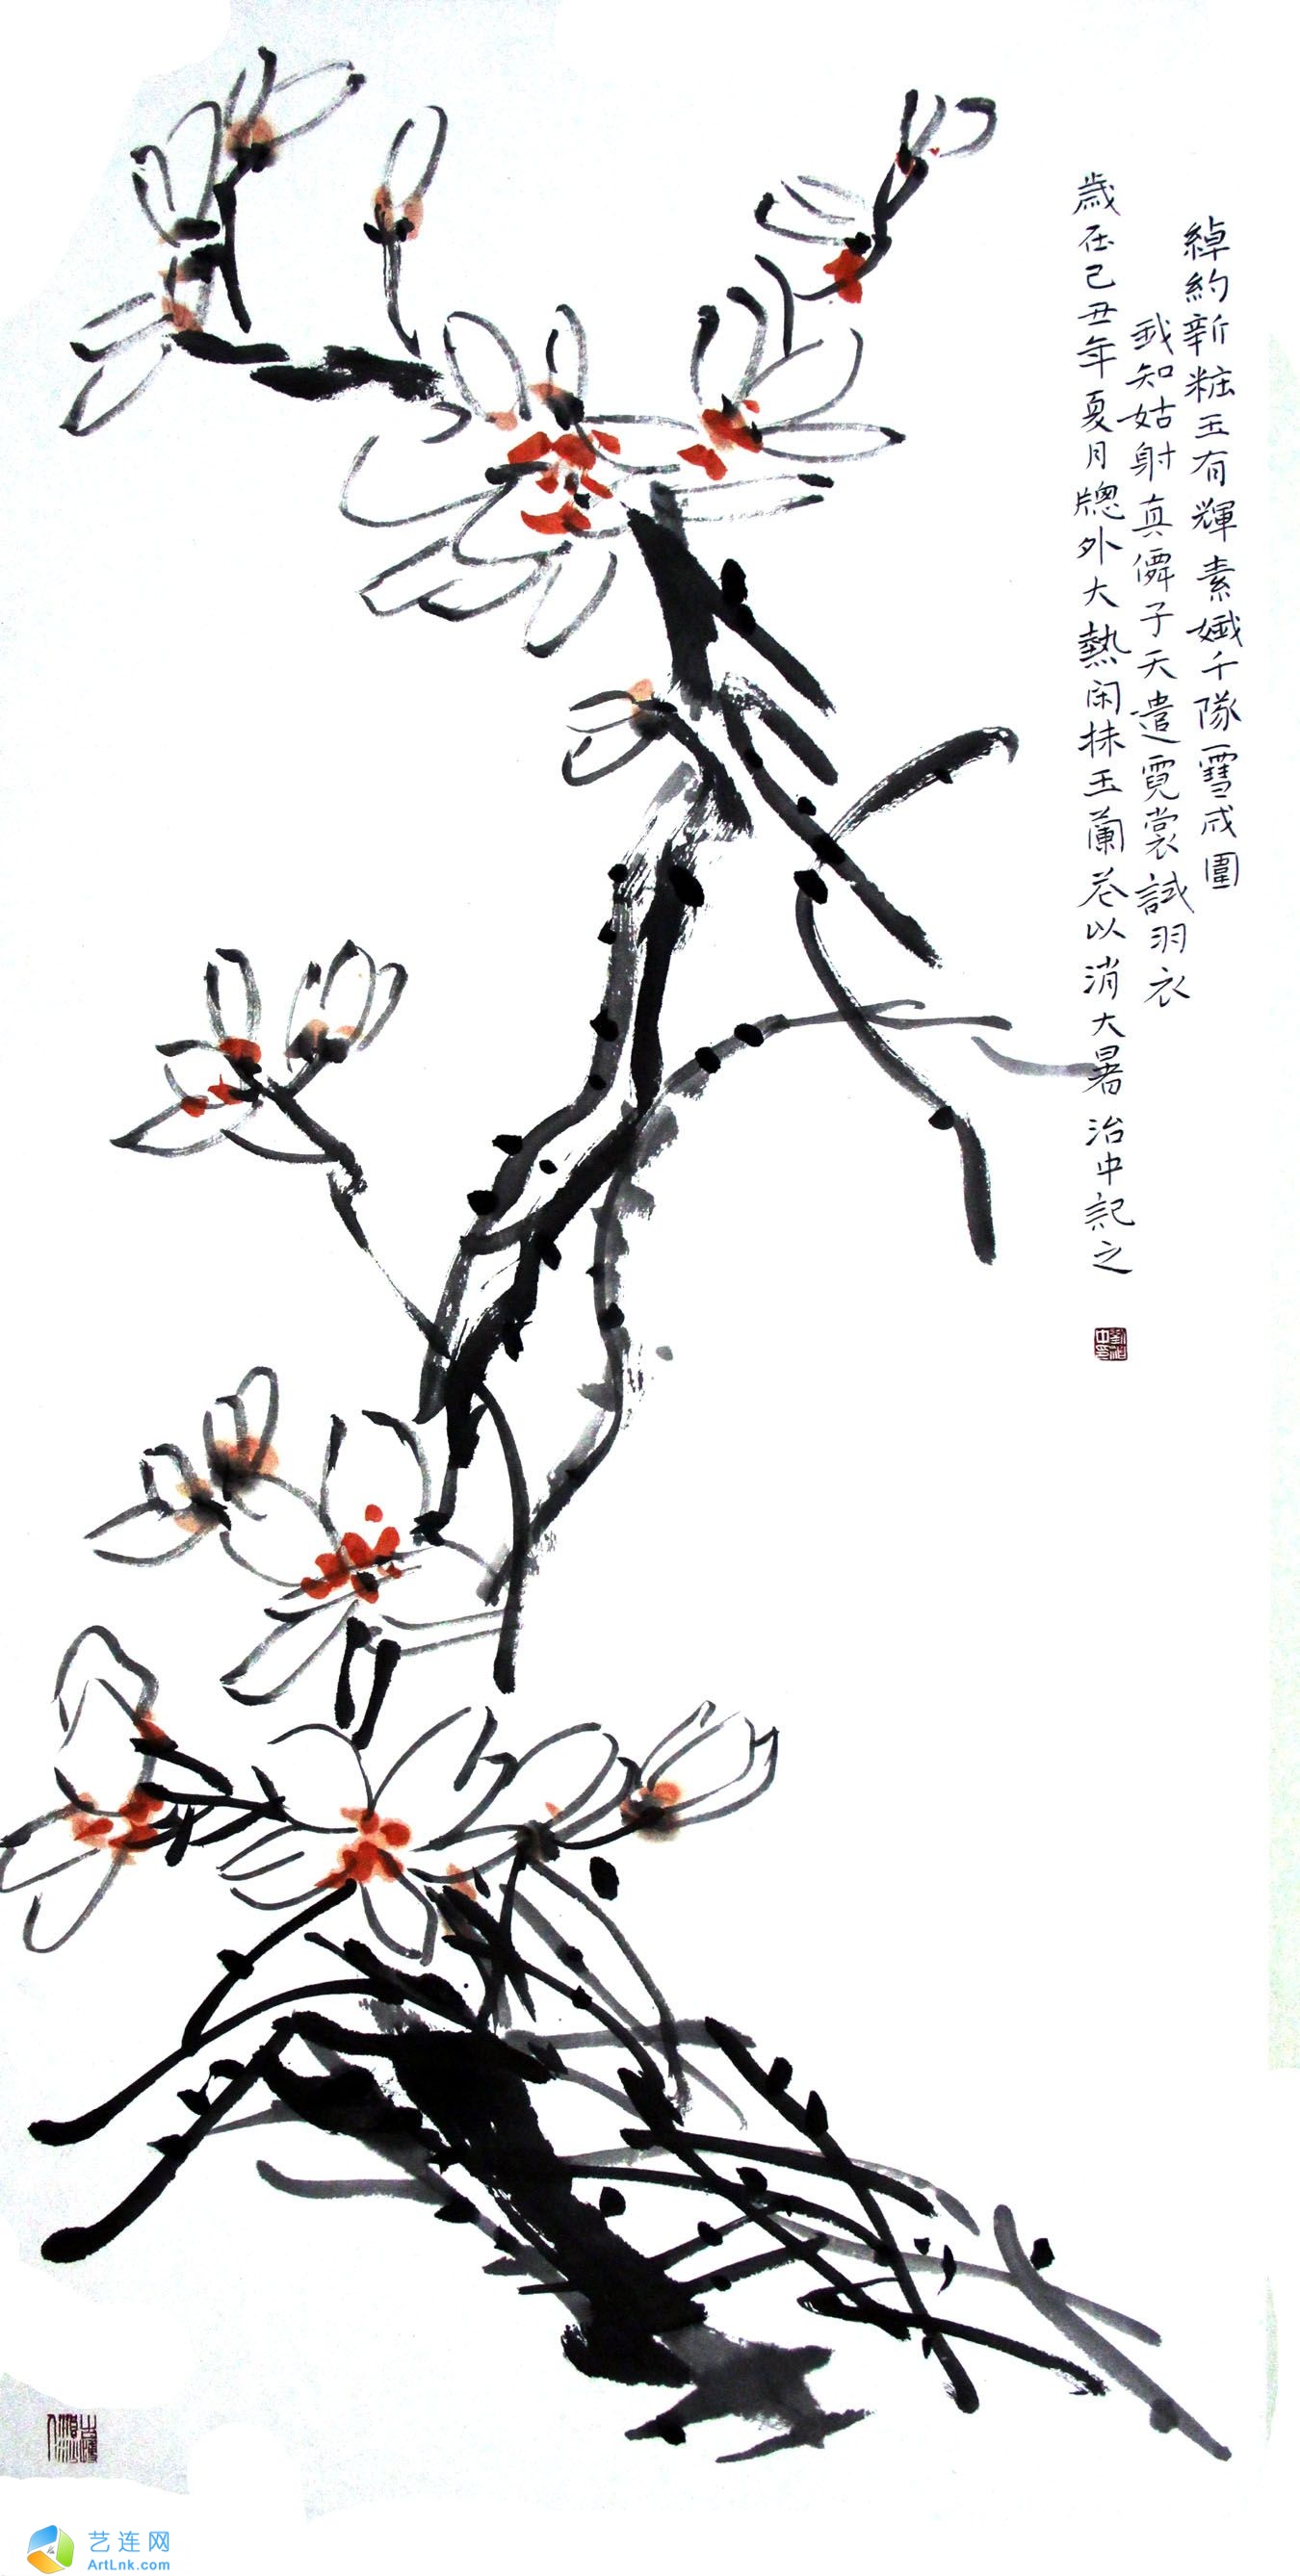 綽約新粧玉有輝素娥千隊雪成圍
我知姑射真僊子天遣霓裳試羽衣
歲在己丑年夏月牕外大熱闲抹玉蘭花以消大暑治中記之
艺连网
ArtLnk.com